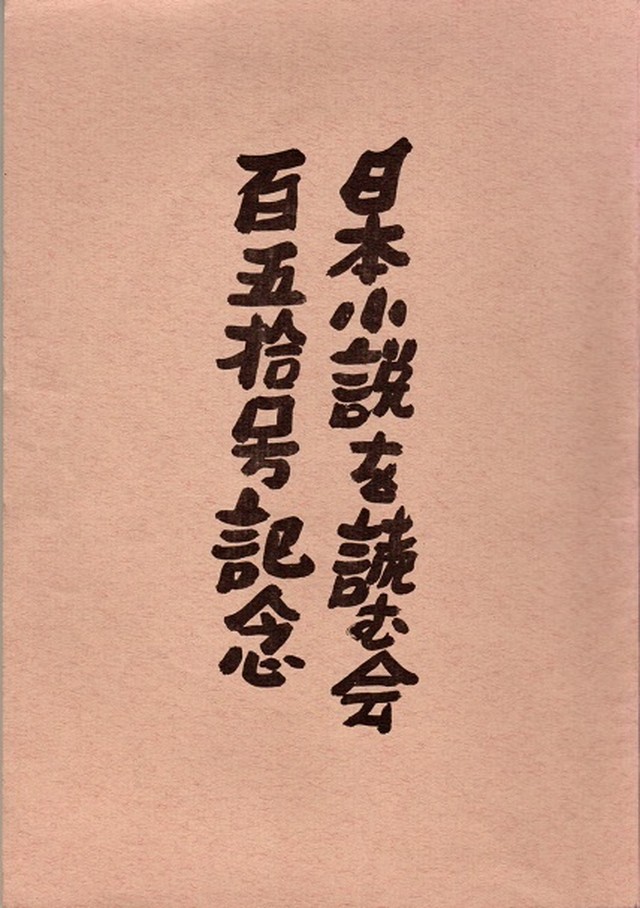 日本小説を読む会
百五拾号記念